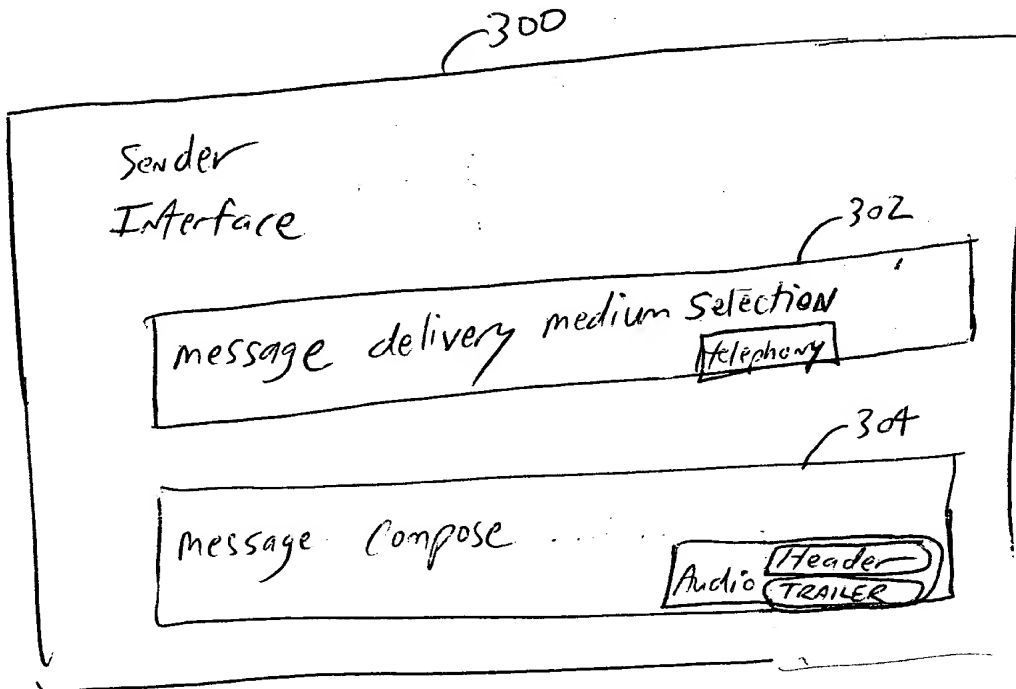 300
Sender
Interface
302
message delivery medium Selection
telephony
304
message Compose ........
Audio Header
TRAILER